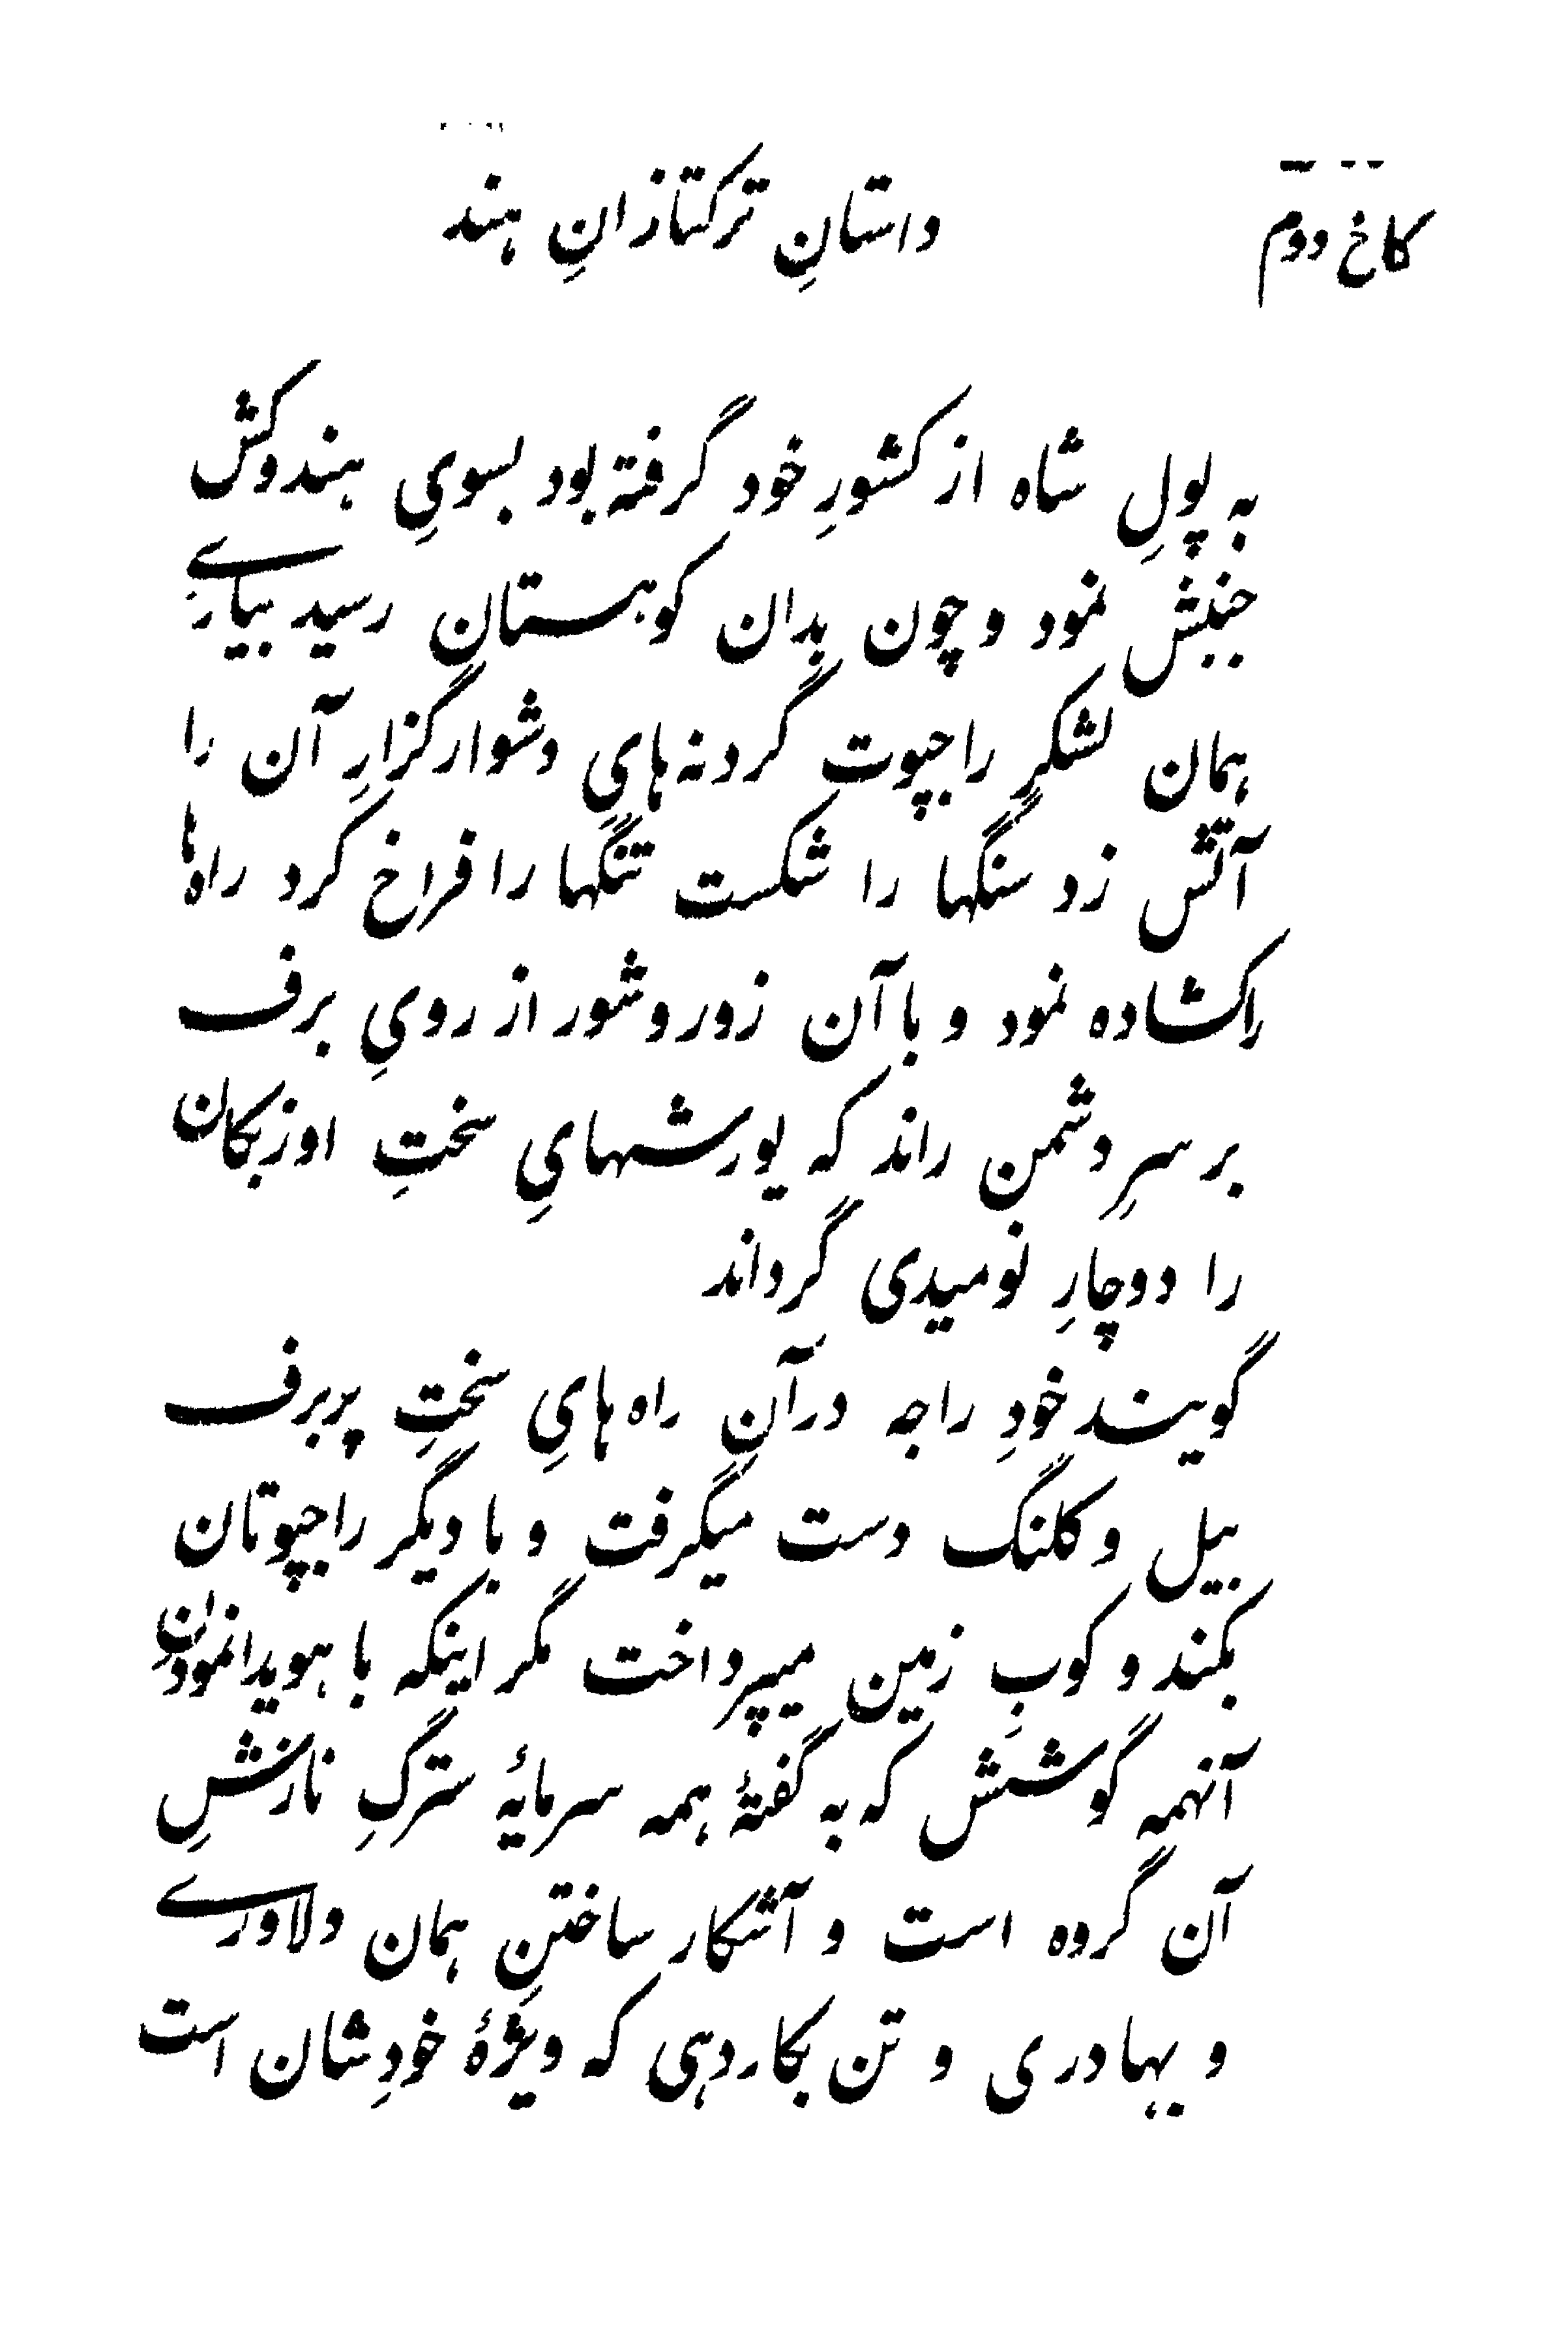 کاخ دوم
داستانِ ترکتازانِ هند
به پولِ شاه از کشورِ خود گرفته بود بسویِ هندوکش
جنبش نمود و چون بدان کوهستان رسید بیاریِ
همان لشکرِ راجپوت گردنه‌هایِ دشوار گزارِ آن را
آتش زد سنگها را شکست تنگها را فراخ کرد راه‌ها
را کشاده نمود و با آن زور و شور از رویِ برف
بر سرِ دشمن راند که یورشهایِ سختِ اوزبکان
را دوچارِ نومیدی گرداند
گویند خودِ راجه در آن راه‌هایِ سختِ پر برف
بیل و کلنگ دست میگرفت و با دیگر راجپوتان
بکند و کوبِ زمین میپرداخت مگر اینکه با هویدا نمودنِ
آنهمه کوشش که به گفتهٔ همه سرمایهٔ سترگِ نازشِ
آن گروه است و آشکار ساختنِ همان دلاوری
و بهادری و تن بکار دهی که ویژهٔ خودِشان است